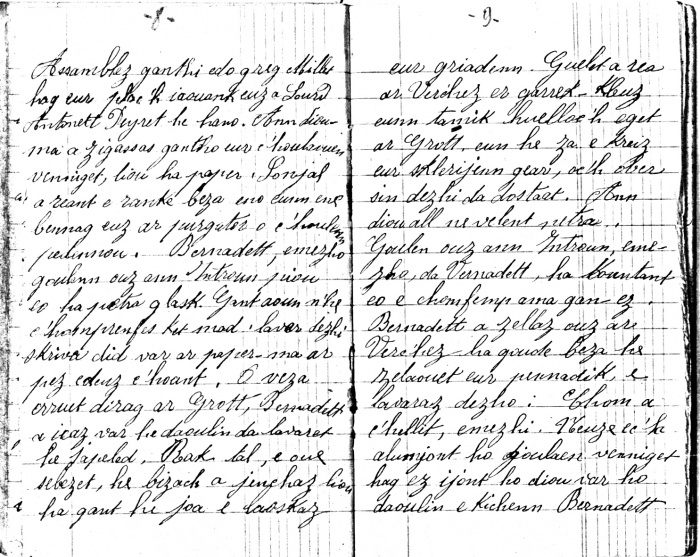 - 8 -
Assamblez ganthi edo greg Millet
hag eur plac'h iaouank euz a Lourd
Antonett Peyret he hano. Ann diou-
ma a zigassas gantho eur c'houlaouen
venniget, liou ha paper. Sonjal
a reant e ranke beza eno eunn ene
bennag euz ar purgator o c'houlenn
pedennou. Bernadett, emezho
goulenn ouz ann Introun piou
eo ha petra glask. Gant aoun n'he
c'homprenfes ket mad: lavar dezhi
skriva did var ar paper-ma ar
pez edeuz c'hoant. O veza
erruet dirag ar Grott, Bernadett
a ieaz var he daoulin da lavaret
he japeled. Rak tal, e oue
sebezet, he bizach a jenchaz liou
ha gant he joa e laoskaz
- 9 -
eur griadenn. Guelet a rea
ar Verc'hez er garrek. Kuz
eunn tamick huelloc'h eget
ar Grott, eun he za e kreiz
eur sklerijenn gear, oc'h ober
sin dezhi da dostaet. Ann
diou all ne velent netra.
Goulen ouz ann Introun, eme-
zho, da Vernadett, ha kountant
eo e chemfemp ama gan ez.
Bernadett a zellaz ouz ar
Verc'hez ha goude beza he
zelaouet eur pennadik, e
lavaraz dezho: Chom a
c'hellit, emezhi. Neuze ec'h
alumjont ho goulaen venniget
hag ez ijont ho diou var ho
daoulin e kichenn Bernadett